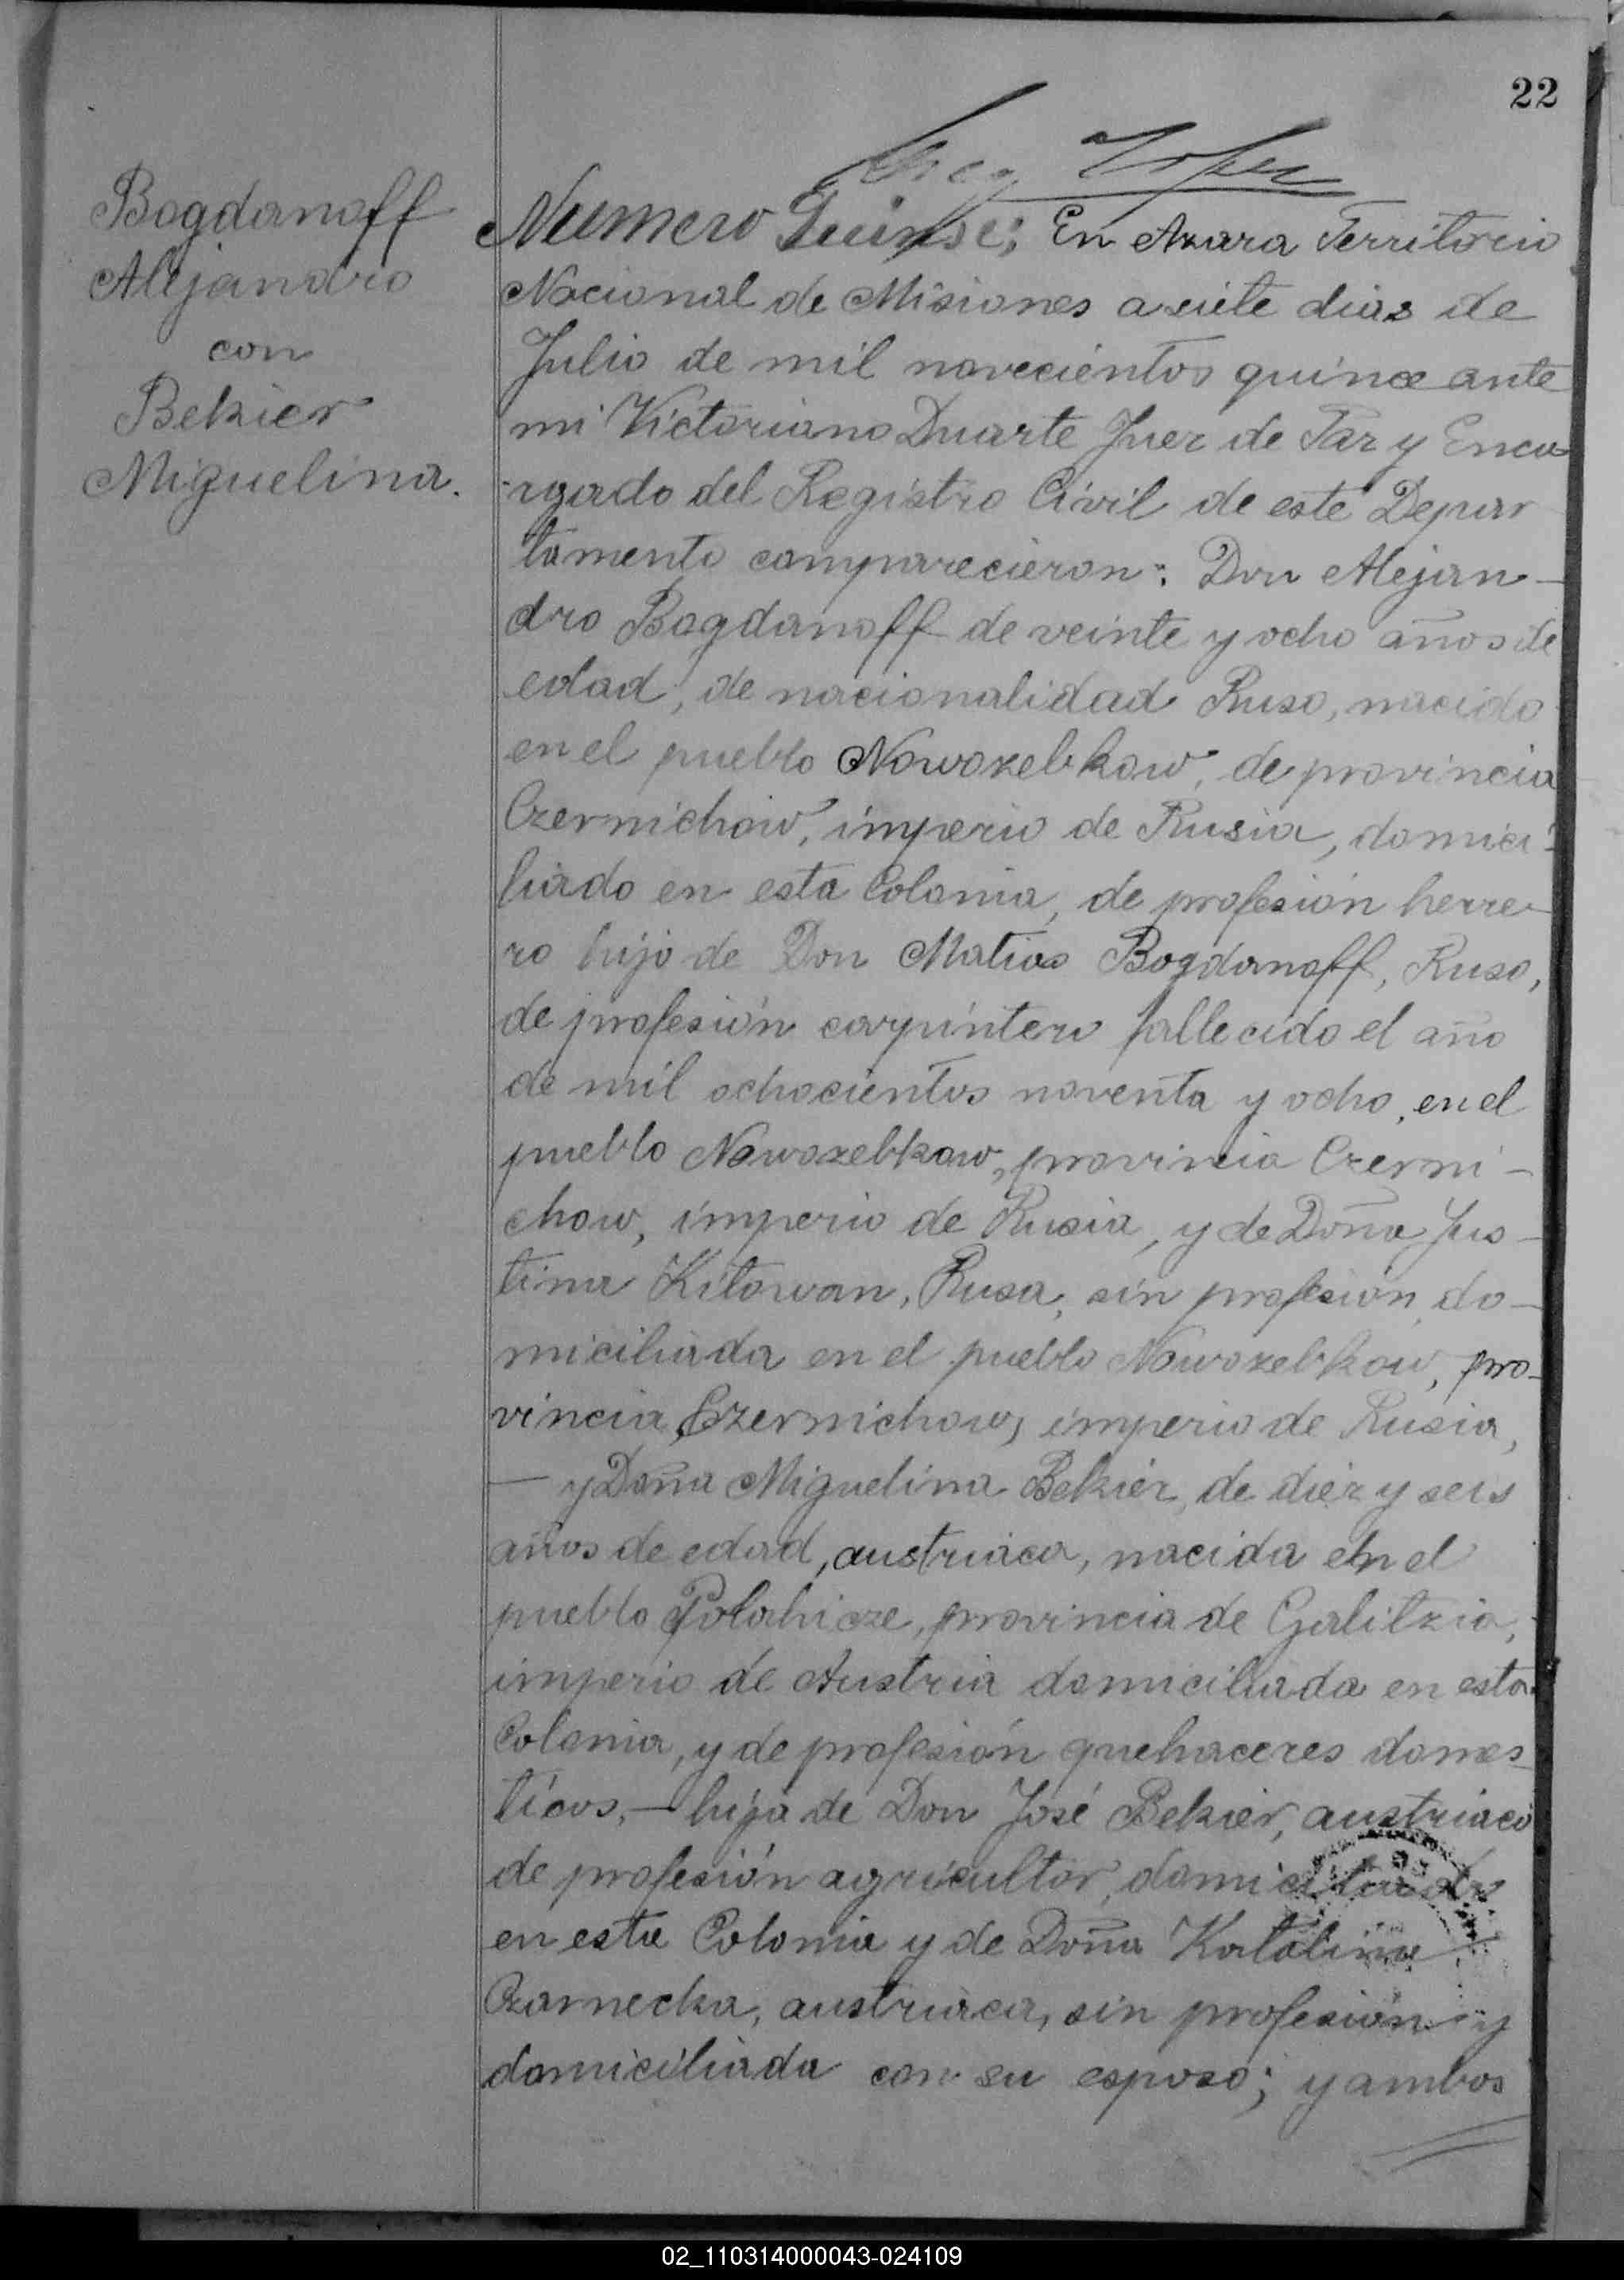 22
Bogdanoff
Alejandro
con
Bekier
Miguelina.
Numero Quinse; En Azara Territorio
Nacional de Misiones a siete dias de
Julio de mil novecientos quince ante
mi Victoriano Duarte Juez de Paz y Enca
rgado del Registro Civil de este Depar
tamento comparecieron: Don Alejan-
dro Bogdanoff de veinte y ocho años de
edad, de nacionalidad Ruso, nacido
en el pueblo Nowozebkow, de provincia
Czernichow, imperio de Rusia, domici
liado en esta Colonia, de profesión herre-
ro hijo de Don Matias Bogdanoff, Ruso,
de profesión carpintero fallecido el año
de mil ochocientos noventa y ocho, en el
pueblo Nowozebkow, provincia Czerni-
chow, imperio de Rusia, y de Doña Jus-
tina Kitowan, Rusa, sin profesión, do-
miciliada en el pueblo Nowozebkow, pro-
vincia Czernichow, imperio de Rusia,
— y Doña Miguelina Bekier, de diez y seis
años de edad, austriaca, nacida en el
pueblo, provincia de Galitzia,
imperio de Austria domiciliada en esta
Colonia, y de profesión quehaceres domes-
ticos, — hija de Don José Bekier, austriaco
de profesión agricultor, domiciliado
en esta Colonia y de Doña Katalina
Czarnecka, austriaca, sin profesión y
domiciliada con su esposo; y ambos
02_110314000043-024109